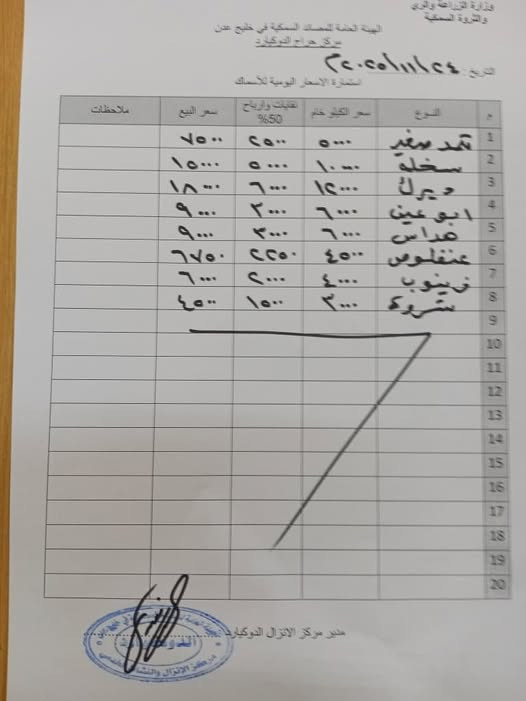 وزارة الزراعة والري
والثروة السمكية
الهيئة العامة للمصائد السمكية في خليج عدن
مركز حراج الدوكيارد
التاريخ : ٢٠٢٥/١١/٢٤م
استمارة الاسعار اليومية للأسماك
م النوع سعر الكيلو خام نفايات وارباح 50% سعر البيع ملاحظات
1 ثمد صغير ٥٠٠٠ ٢٥٠٠ ٧٥٠٠
2 سخلة ١٠٠٠٠ ٥٠٠٠ ١٥٠٠٠
3 ديرك ١٢٠٠٠ ٦٠٠٠ ١٨٠٠٠
4 ابو عين ٦٠٠٠ ٣٠٠٠ ٩٠٠٠
5 هداس ٦٠٠٠ ٣٠٠٠ ٩٠٠٠
6 عنفلوص ٤٥٠٠ ٢٢٥٠ ٦٧٥٠
7 زينوب ٤٠٠٠ ٢٠٠٠ ٦٠٠٠
8 شروة ٣٠٠٠ ١٥٠٠ ٤٥٠٠
9
10
11
12
13
14
15
16
17
18
19
20
مدير مركز الانزال الدوكيارد